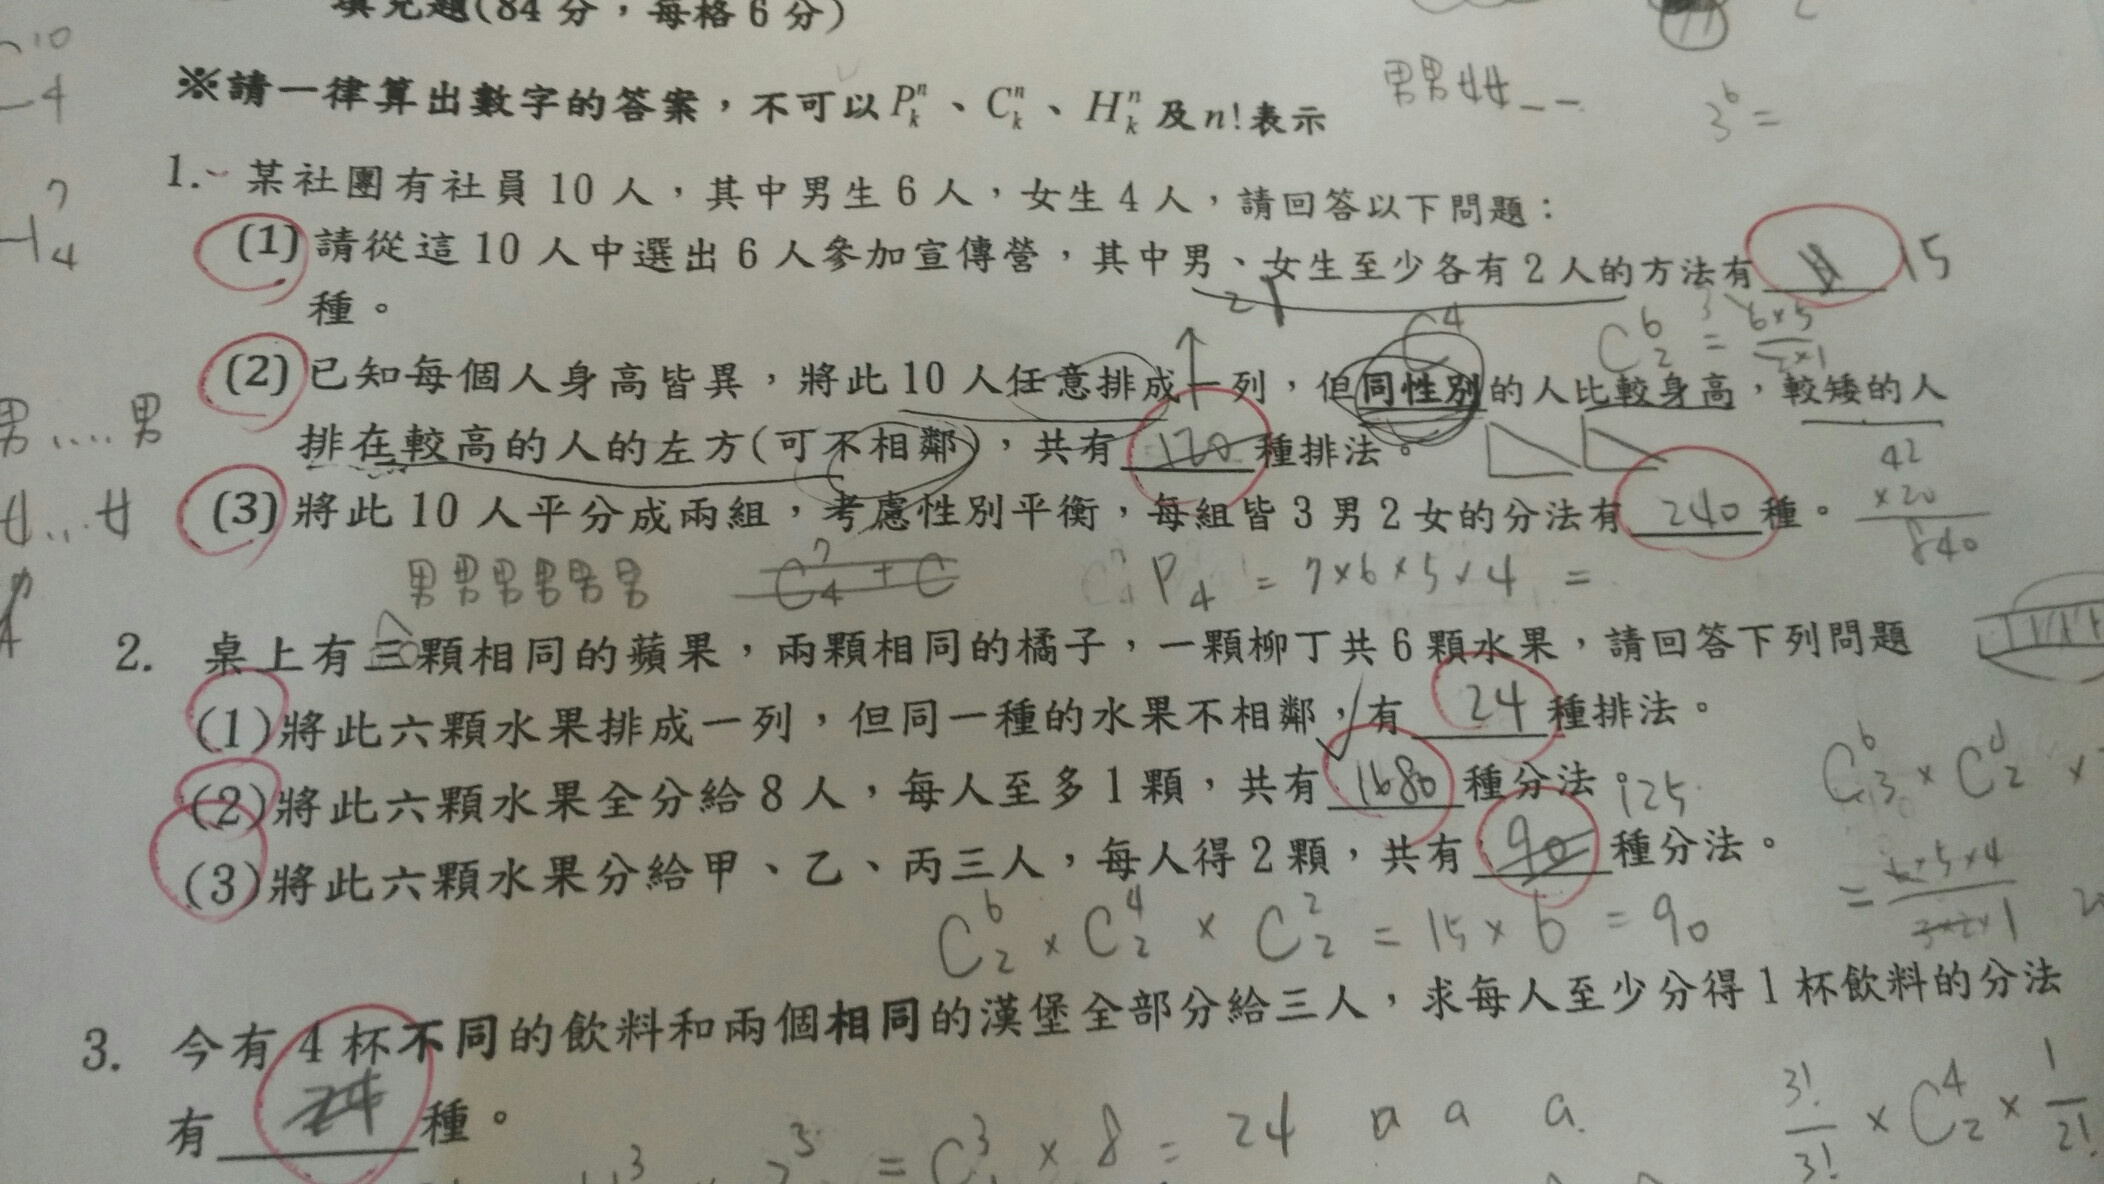 填充題(84分,每格6分)
※請一律算出數字的答案,不可以 P^n_k、C^n_k、H^n_k 及 n! 表示
男男女女_ _
3^6 =
10
4
7
4
1. 某社團有社員10人,其中男生6人,女生4人,請回答以下問題:
(1) 請從這10人中選出6人參加宣傳營,其中男、女生至少各有2人的方法有 15
種。
C^6_2 = 6×5/2×1
C^4
(2) 已知每個人身高皆異,將此10人任意排成一列,但同性別的人比較身高,較矮的人
排在較高的人的左方(可不相鄰),共有 120 種排法。
男....男
女...女
42
×20
840
(3) 將此10人平分成兩組,考慮性別平衡,每組皆3男2女的分法有 240 種。
男男男男男男 C^7_4 + C P_4 = 7×6×5×4 =
2. 桌上有三顆相同的蘋果,兩顆相同的橘子,一顆柳丁共6顆水果,請回答下列問題
(1) 將此六顆水果排成一列,但同一種的水果不相鄰,有 24 種排法。
(2) 將此六顆水果全分給8人,每人至多1顆,共有 1680 種分法
(3) 將此六顆水果分給甲、乙、丙三人,每人得2顆,共有 90 種分法。
C^6_2 × C^4_2 × C^2_2 = 15×6 = 90
3. 今有4杯不同的飲料和兩個相同的漢堡全部分給三人,求每人至少分得1杯飲料的分法
有 24 種。
= C^3 × 8 = 24 a a a
3!/3! × C^4_2 × 1/2!